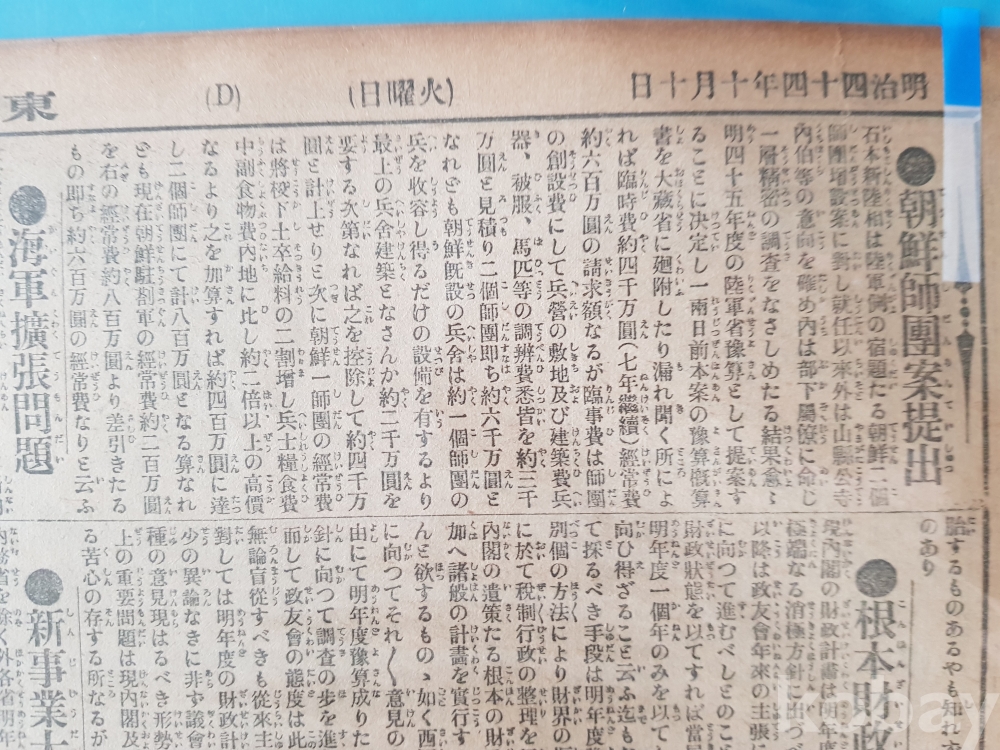 明治四十四年十月十日
(火曜日)
(D)
東
●朝鮮師團案提出
石本新陸相は陸軍例の宿題たる朝鮮二個
師團增設案に對し就任以來外は山縣公寺
內伯等の意向を確め內は部下屬僚に命じ
一層精密の調査をなさしめたる結果愈々
明四十五年度の陸軍省豫算として提案す
ることに決定し一兩日前本案の豫算槪算
書を大藏省に廻附したり漏れ聞く所によ
れば臨時費約四千万圓(七年繼續)經常費
約六百万圓の請求額なるが臨事費は師團
の創設費にして兵營の敷地及び建築費兵
器、被服、馬匹等の調辨費悉皆を約三千
万圓と見積り二個師團即ち約六千万圓と
なれども朝鮮旣設の兵舍は約一個師團の
兵を收容し得るだけの設備を有するより
最上の兵舍建築となさんか約二千万圓を
要する次第なれば之を控除して約四千万
圓と計上せりと次に朝鮮一師團の經常費
は將校下士卒給料の二割增し兵士糧食費
中副食物費內地に比し約一倍以上の高價
なるより之を加算すれば約四百万圓に達
し二個師團にて計八百万圓となる算なれ
ども現在朝鮮駐剳軍の經常費約二百万圓
を右の經常費約八百万圓より差引きたる
もの即ち約六百万圓の經常費なりと云ふ
●海軍擴張問題
胎するものあるやも知れ
のあり
●根本財政
現內閣の財政計畫は明年度
極端なる消極方針に出づ
以降は政友會年來の主張
に向つて進むべしとのこ
財政狀態を以てすれば當局
明年度一個年のみを以ても
向ひ得ざること云ふ迄も
て採るべき手段は明年度
別個の方法により財界の
に於て稅制行政の整理を
內閣の遺策たる根本の財
加へ諸般の計畫を實行す
んと欲するもの、如く西
に向つてそれ〲意見の
由にて明年度豫算成りた
針に向つて調査の步を進
而して政友會の態度は此
無論盲從すべきも從來主
對しては明年度の財政計
少の異論なきに非ず議會
種の意見現はるべき形勢
上の重要問題は現內閣及
る苦心の存する所なるが
●新事業
內務省を除く外各省明年